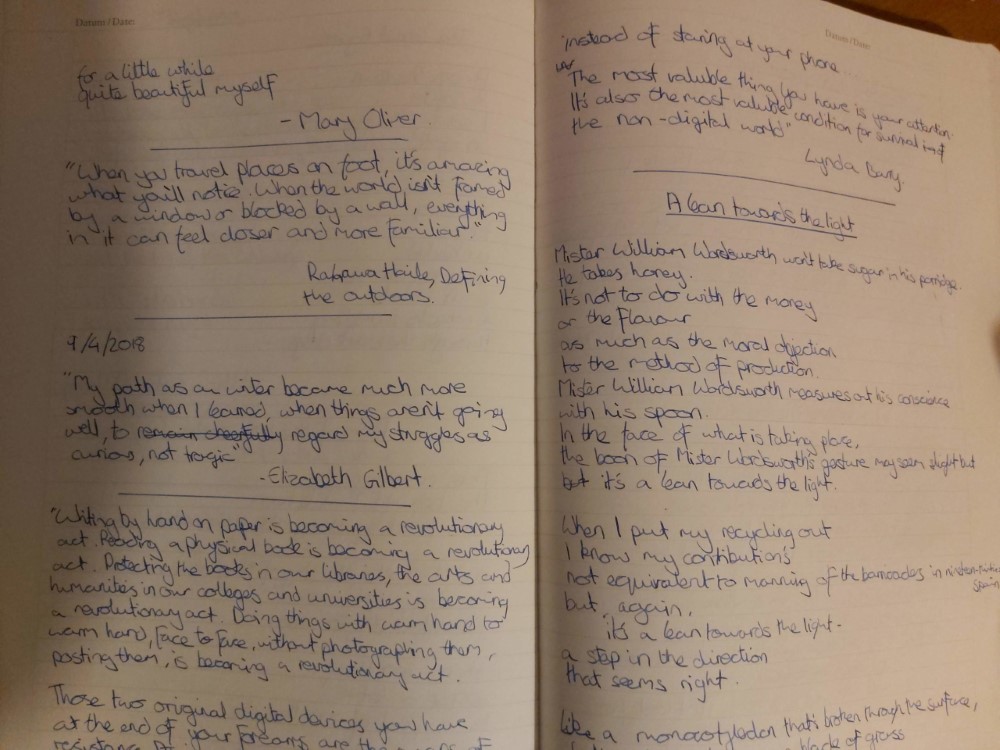 Datum/Date
for a little while
quite beautiful myself
- Mary Oliver.
"When you travel places on foot, it's amazing
what you'll notice. When the world isn't framed
by a window or blocked by a wall, everything
in it can feel closer and more familiar."
Rahawa Haile, Defining
the outdoors.
9/4/2018
"My path as a writer became much more
smooth when I learned, when things aren't going
well, to remain cheerfully regard my struggles as
curious, not tragic"
- Elizabeth Gilbert.
"Writing by hand on paper is becoming a revolutionary
act. Reading a physical book is becoming a revolutionary
act. Protecting the books in our libraries, the arts and
humanities in our colleges and universities is becoming
a revolutionary act. Doing things with warm hand to
warm hand, face to face, without photographing them,
posting them, is becoming a revolutionary act.
Those two original digital devices you have
at the end of your forearms are the means of
resistance.
Datum/Date
instead of staring at your phone...
"The most valuable thing you have is your attention.
It's also the most valuable condition for survival of
the non-digital world"
Lynda Barry.
A lean towards the light
Mister William Wordsworth won't take sugar in his porridge.
He takes honey.
It's not to do with the money
or the flavour
as much as the moral objection
to the method of production.
Mister William Wordsworth measures out his conscience
with his spoon.
In the face of what is taking place,
the boon of Mister Wordsworth's gesture may seem slight but
but it's a lean towards the light.
When I put my recycling out
I know my contribution's
not equivalent to manning of the barricades in nineteen-thirties
Spain
but, again,
it's a lean towards the light -
a step in the direction
that seems right.
Like a monocotyledon that's broken through the surface,
blade of grass